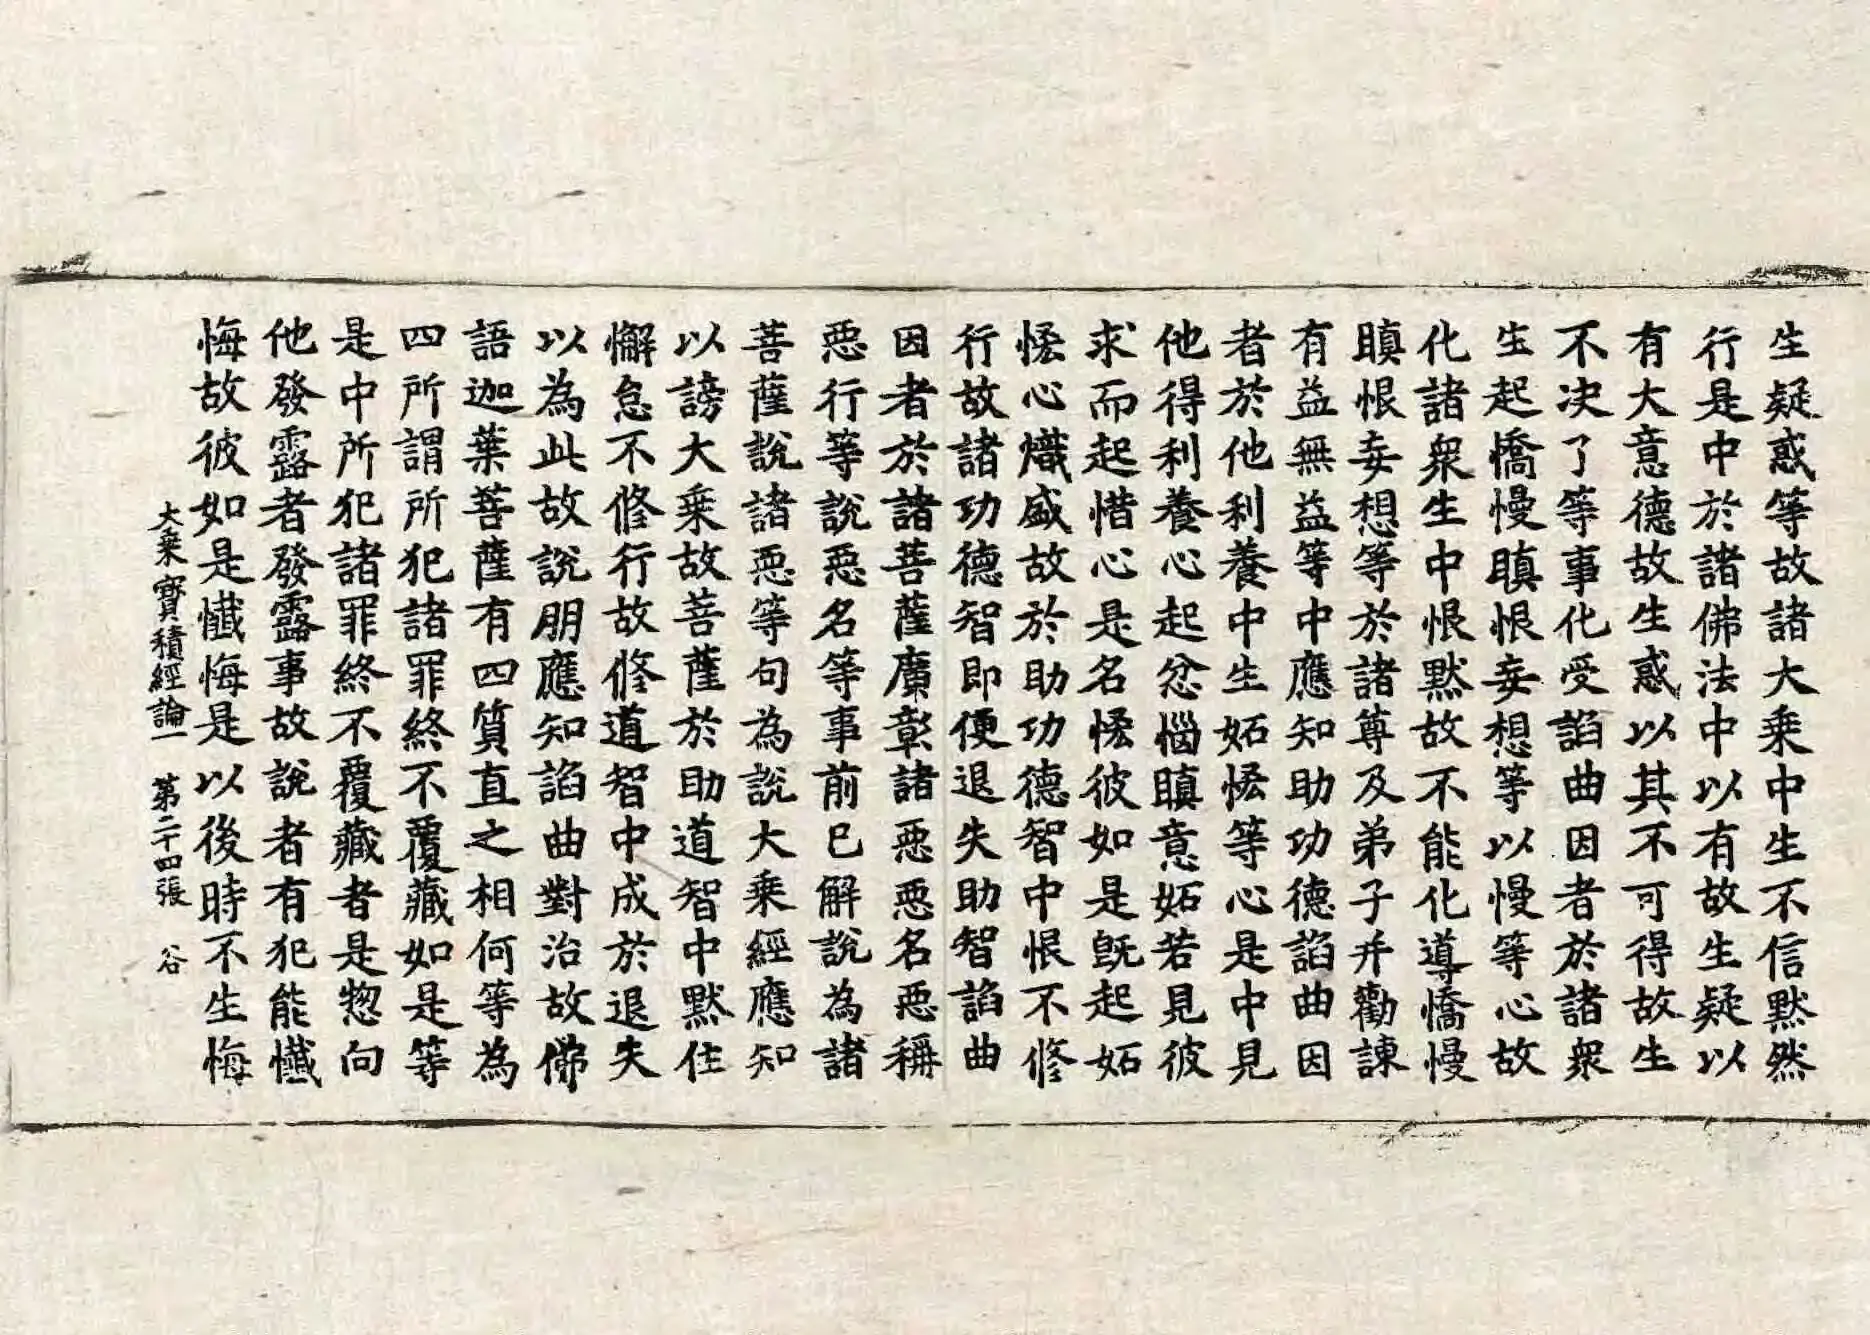 生疑惑等故諸大乗中生不信黙然
行是中於諸佛法中以有故生疑以
有大意德故生惑以其不可得故生
不决了等事化受諂曲因者於諸衆
生起憍慢瞋恨妄想等以慢等心故
化諸衆生中恨黙故不能化導憍慢
瞋恨妄想等於諸尊及弟子并勸諫
有益無益等中應知助功德諂曲因
者於他利養中生妬恡等心是中見
他得利養心起忿惱瞋意妬若見彼
求而起惜心是名恡彼如是旣起妬
恡心熾盛故於助功德智中恨不修
行故諸功德智即便退失助智諂曲
因者於諸菩薩廣彰諸惡惡名惡稱
惡行等說惡名等事前已解說為諸
菩薩說諸惡等句為說大乗經應知
以謗大乗故菩薩於助道智中黙住
懈怠不修行故修道智中成於退失
以為此故說朋應知諂曲對治故佛
語迦葉菩薩有四質直之相何等為
四所謂所犯諸罪終不覆藏如是等
是中所犯諸罪終不覆藏者是惣向
他發露者發露事故說者有犯能懺
悔故彼如是懺悔是以後時不生悔
大乗寳積經論一　第二十四張　谷